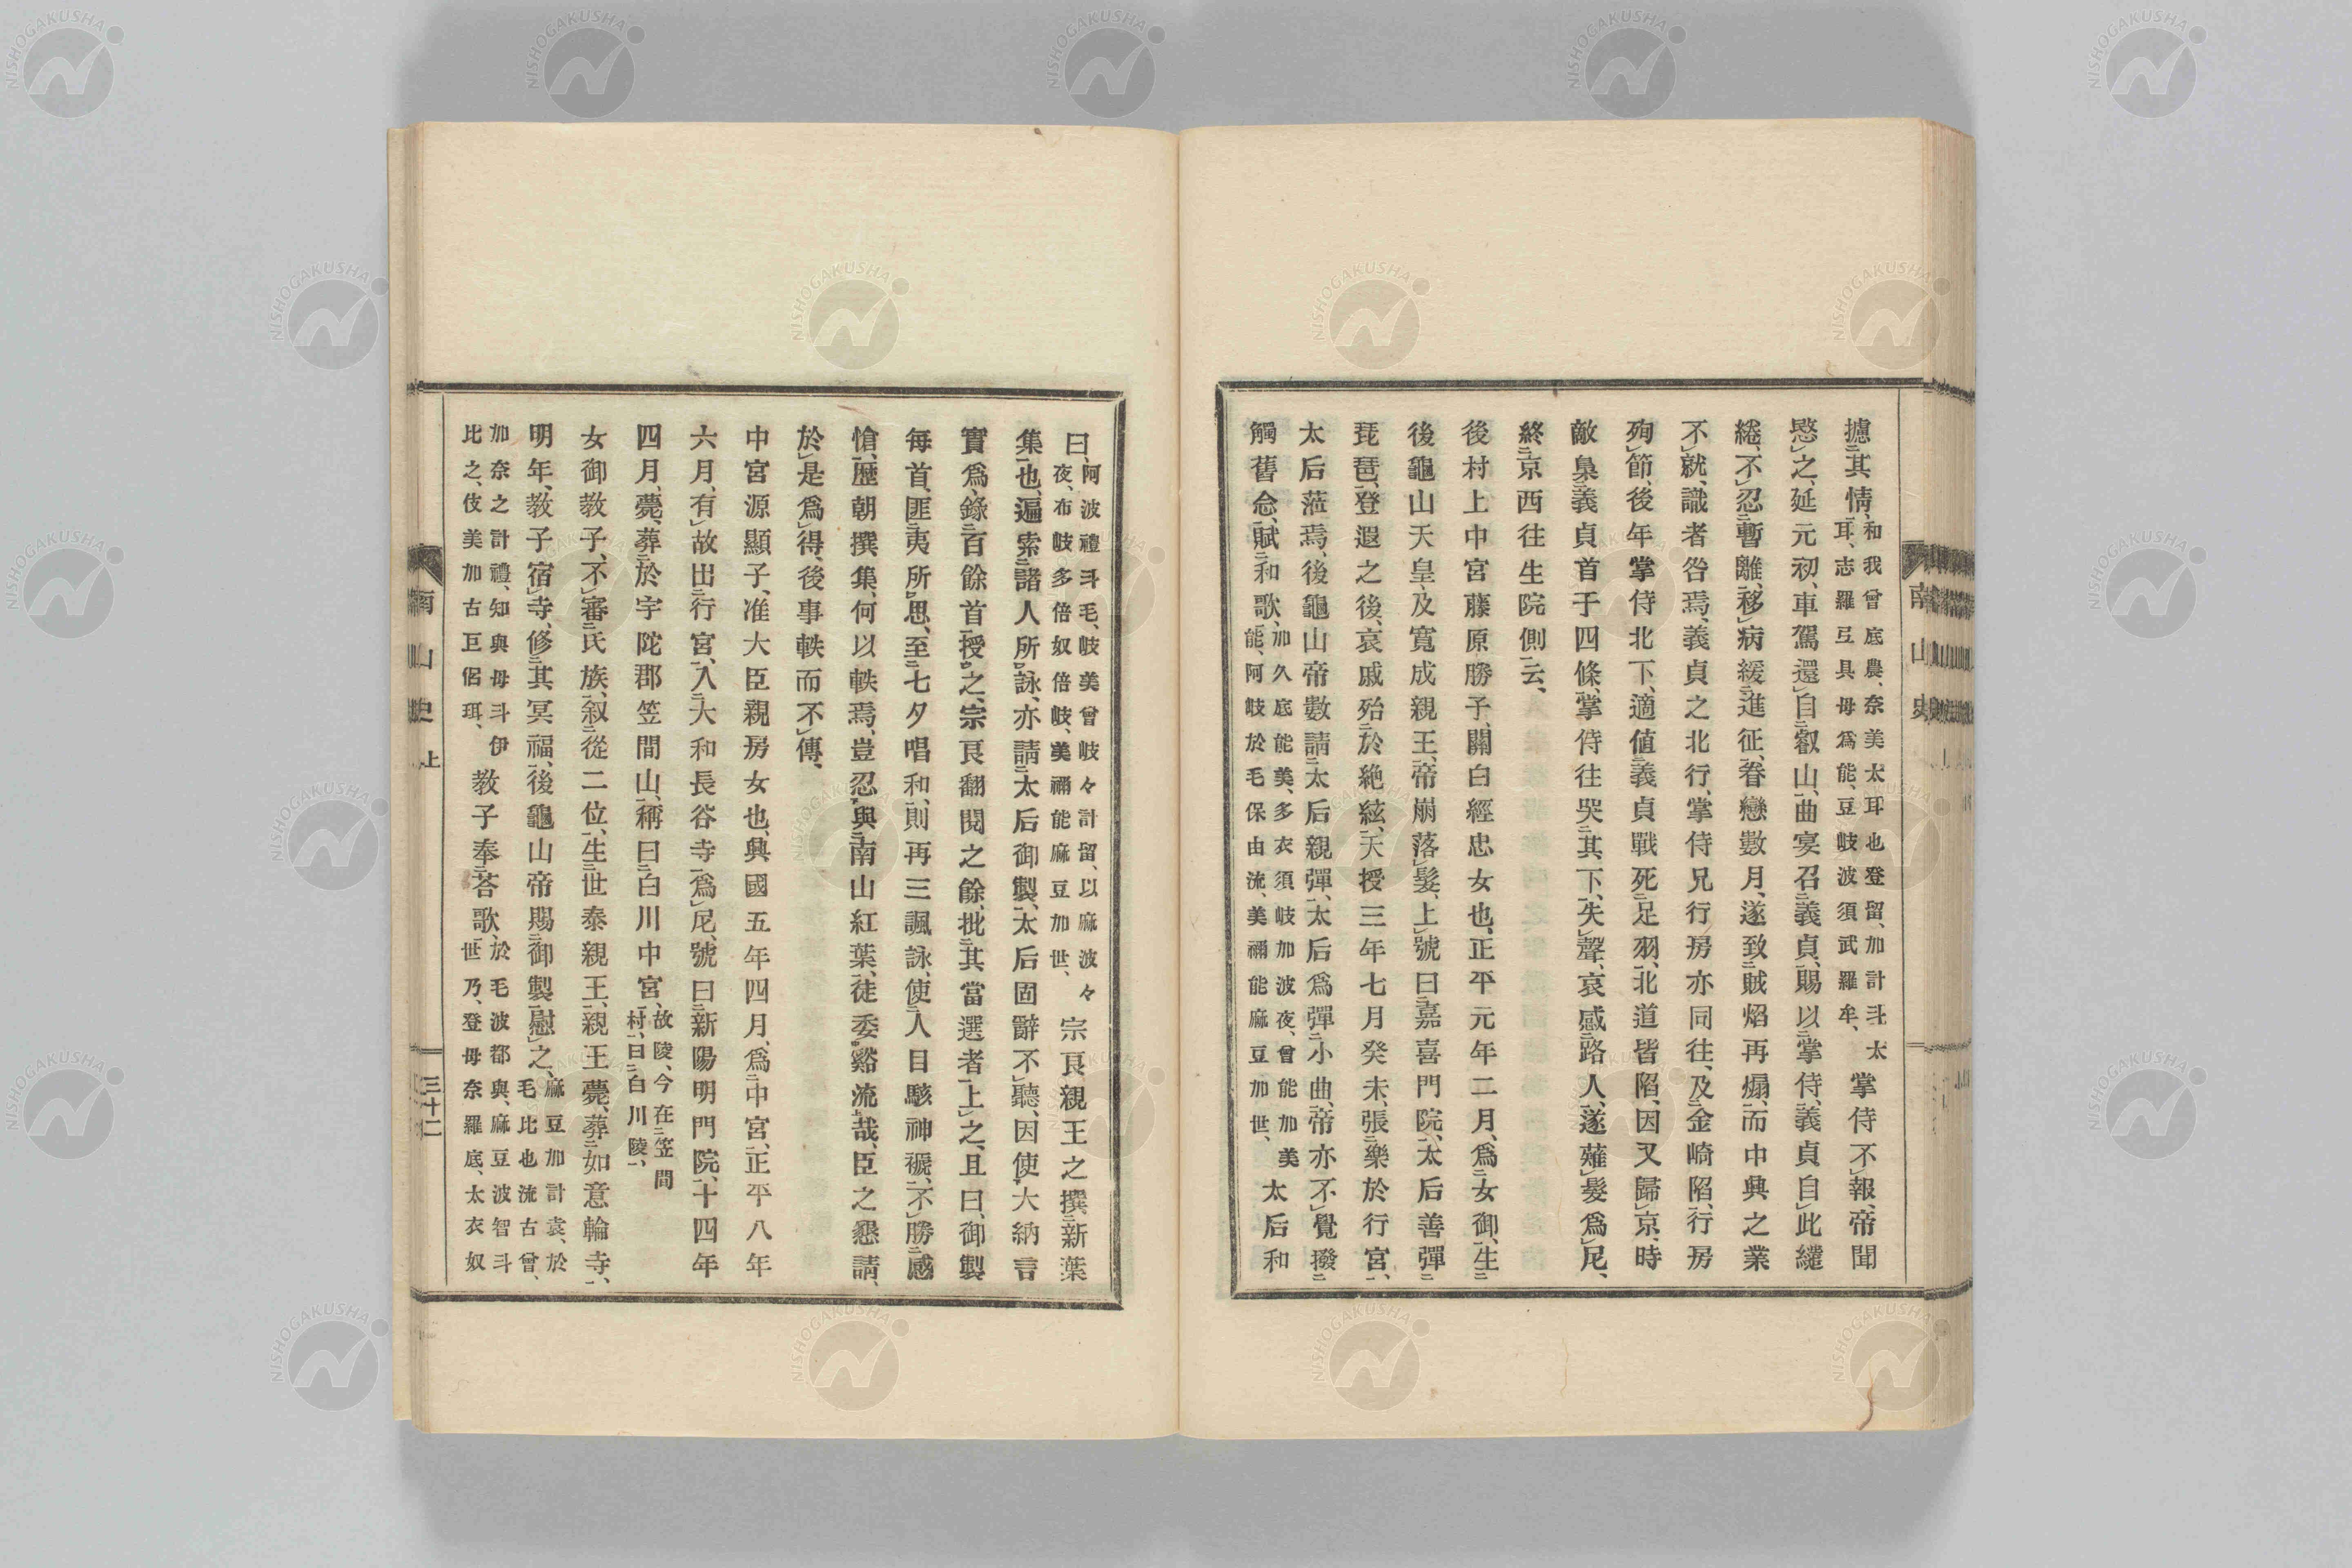 攄二其情、一和我曾底農、奈美太耳也登留、加計斗、太耳、志羅互具毋爲能、豆岐波須武羅牟、掌侍不レ報、帝聞
愍レ之、延元初、車駕還レ自二叡山、一曲宴召二義貞、一賜以二掌侍、一義貞自レ此繾
綣、不レ忍二暫離、一移レ病緩二進征、一眷戀數月、遂致二賊焰再煽、一而中興之業
不レ就、識者咎焉、義貞之北行、掌侍兄行房亦同往、及二金崎陷、一行房
殉レ節、後年掌侍北下、適値二義貞戰死二足羽、一北道皆陷、因又歸レ京、時
敵梟二義貞首于四條、一掌侍往哭二其下、一失レ聲、哀感二路人、一遂薙レ髮爲レ尼、
終二京西往生院側一云、
後村上中宮藤原勝子、關白經忠女也、正平元年二月、爲二女御、一生二
後龜山天皇、及寬成親王、一帝崩落レ髮、上レ號曰二嘉喜門院、一太后善彈二
琵琶、一登遐之後、哀戚殆二於絕絃、一天授三年七月癸未、張二樂於行宮、一
太后蒞焉、後龜山帝數請二太后親彈、一太后爲彈二小曲、一帝亦不レ覺撥二
觸舊念、一賦二和歌、一加久底能美、多衣須岐加波夜、曾能加美能、阿岐於毛保由流、美禰能麻豆加世、太后和
曰、阿波禮斗毛、岐美曾岐々計留、以麻波々夜、布岐多倍奴倍岐、美禰能麻豆加世、宗良親王之撰二新葉
集一也、遍索二諸人所一レ詠、亦請二太后御製、一太后固辭不レ聽、因使二大納言
實爲、錄二百餘首一授一レ之、宗良翻閱之餘、批二其當選者一上レ之、且曰、御製
每首、匪二夷所一レ思、至二七夕唱和、一則再三諷詠、使二人目駭神褫、一不レ勝二感
愴、一歷朝撰集、何以軼焉、豈忍下與二南山紅葉、一徒委中谿流上哉、臣之懇請、
於レ是爲レ得、後事軼而不レ傳、
中宮源顯子、准大臣親房女也、興國五年四月、爲二中宮、一正平八年
六月、有レ故出二行宮、一入二大和長谷寺一爲レ尼、號曰二新陽明門院、一十四年
四月、薨、葬二於宇陀郡笠間山、一稱曰二白川中宮、一故陵、今在二笠間村、一曰二白川陵、一
女御教子、不レ審二氏族、一叙二從二位、一生二世泰親王、一親王薨、葬二如意輪寺、一
明年、教子宿レ寺、修二其冥福、一後龜山帝賜二御製一慰レ之、麻豆加計袁、於毛比也流古曾、
加奈之計禮、知與毋斗伊比之、伎美加古巨侶珥、教子奉二荅歌、一於毛波都與、麻豆波智斗世乃、登毋奈羅底、太衣奴
南山史 上 三十二
南山史